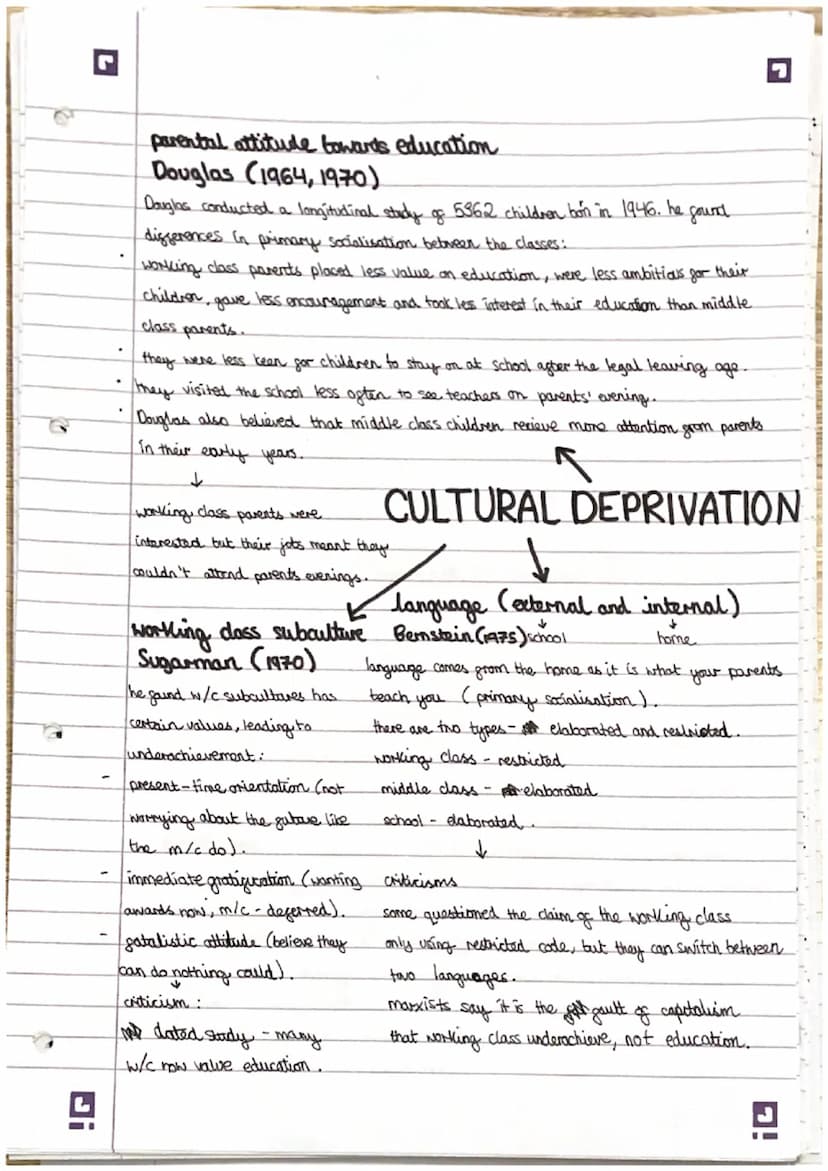 parental attitude towards education
Douglas (1964, 1970)
Douglas conducted a longitudinal study of 5362 children born in 1946. he found
differences in primary socialisation between the classes:
· working class parents placed less value on education, were less ambitious for their
children, gave less encouragement and took less interest in their education than middle
class parents.
· they were less keen for children to stay on at school after the legal leaving age.
· they visited the school less often to see teachers on parents' evening.
· Douglas also believed that middle class children recieve more attention from parents
in their early years.
↓
working class parents were
interested but their jobs meant they
couldn't attend parents evenings.
CULTURAL DEPRIVATION
working class subculture
Sugarman (1970)
he found w/c subcultures has
certain values, leading to
underachievement:
- present-time orientation (not
worrying about the future like
the m/c do).
- immediate gratification (wanting
awards now, m/c - deferred).
- fatalistic attitude (believe they
can do nothing could).
↓
criticism:
dated study - many
w/c now value education.
language (external and internal)
↓ ↓
Bernstein (1975) school home
language comes from the home as it is what your parents
teach you (primary socialisation).
there are two types - elaborated and restricted.
working class - restricted
middle class - elaborated
school - elaborated.
↓
criticisms
some questioned the claim of the working class
only using restricted code, but they can switch between
two languages.
marxists say it is the fault of capitalism
that working class underachieve, not education.